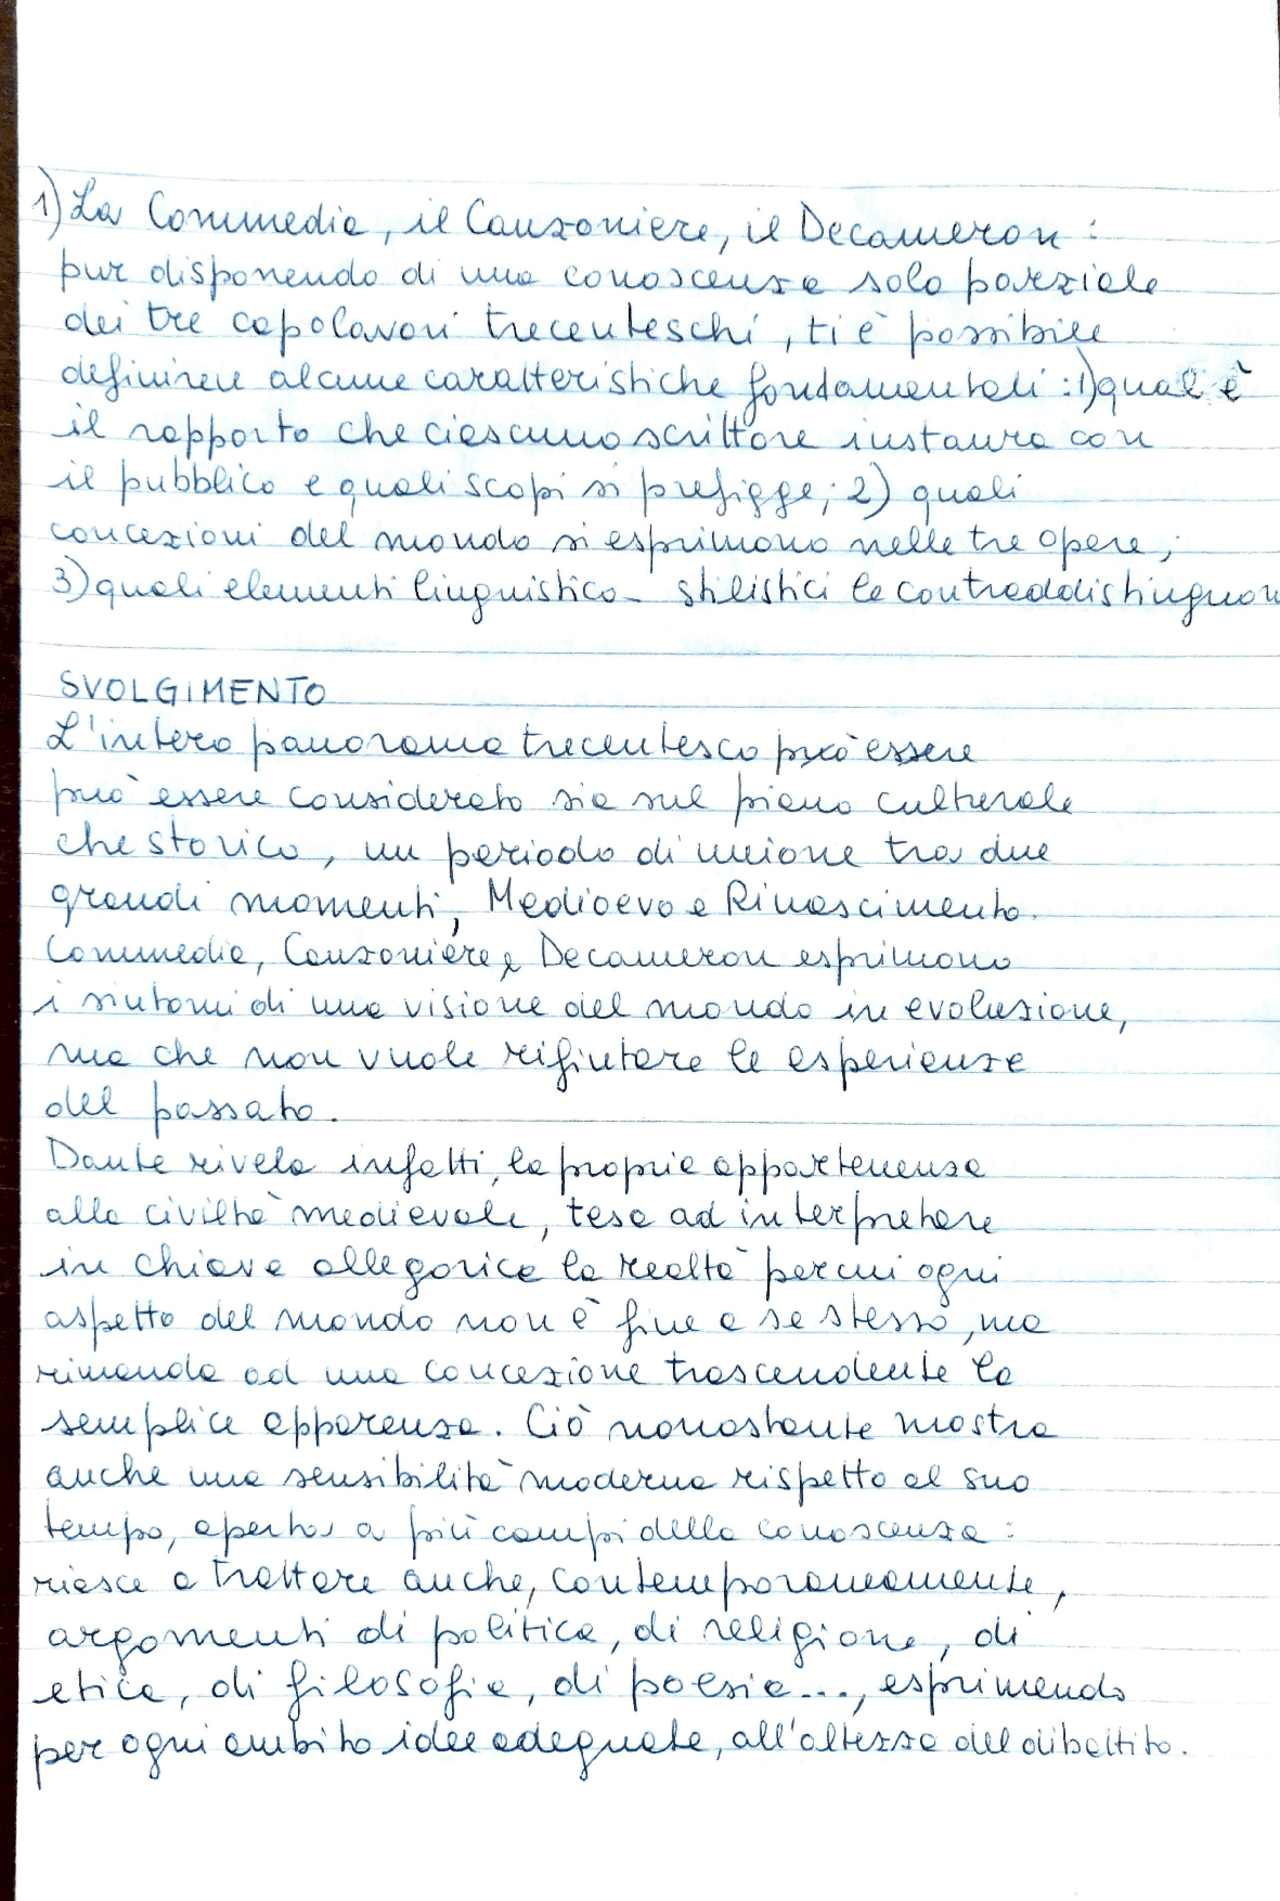 1) La Commedia, il Canzoniere, il Decameron :
pur disponendo di una conoscenza solo parziale
dei tre capolavori trecenteschi, ti è possibile
definirne alcune caratteristiche fondamentali : 1) qual è
il rapporto che ciascuno scrittore instaura con
il pubblico e quali scopi si prefigge; 2) quali
concezioni del mondo si esprimono nelle tre opere;
3) quali elementi linguistico - stilistici le contraddistinguon
SVOLGIMENTO
L'intero panorama trecentesco può essere
può essere considerato sia sul piano culturale
che storico, un periodo di unione tra due
grandi momenti, Medioevo e Rinascimento.
Commedia, Canzoniere e Decameron esprimono
i sintomi di una visione del mondo in evoluzione,
ma che non vuole rifiutare le esperienze
del passato.
Dante rivela infatti, la propria appartenenza
alla civiltà medievale, tesa ad interpretare
in chiave allegorica la realtà per cui ogni
aspetto del mondo non è fine a se stesso, ma
rimanda ad una concezione trascendente la
semplice apparenza. Ciò nonostante mostra
anche una sensibilità moderna rispetto al suo
tempo, aperta a più campi della conoscenza :
riesce a trattare anche, contemporaneamente,
argomenti di politica, di religione, di
etica, di filosofia, di poesia..., esprimendo
per ogni ambito idee adeguate, all'altezza del dibattito.